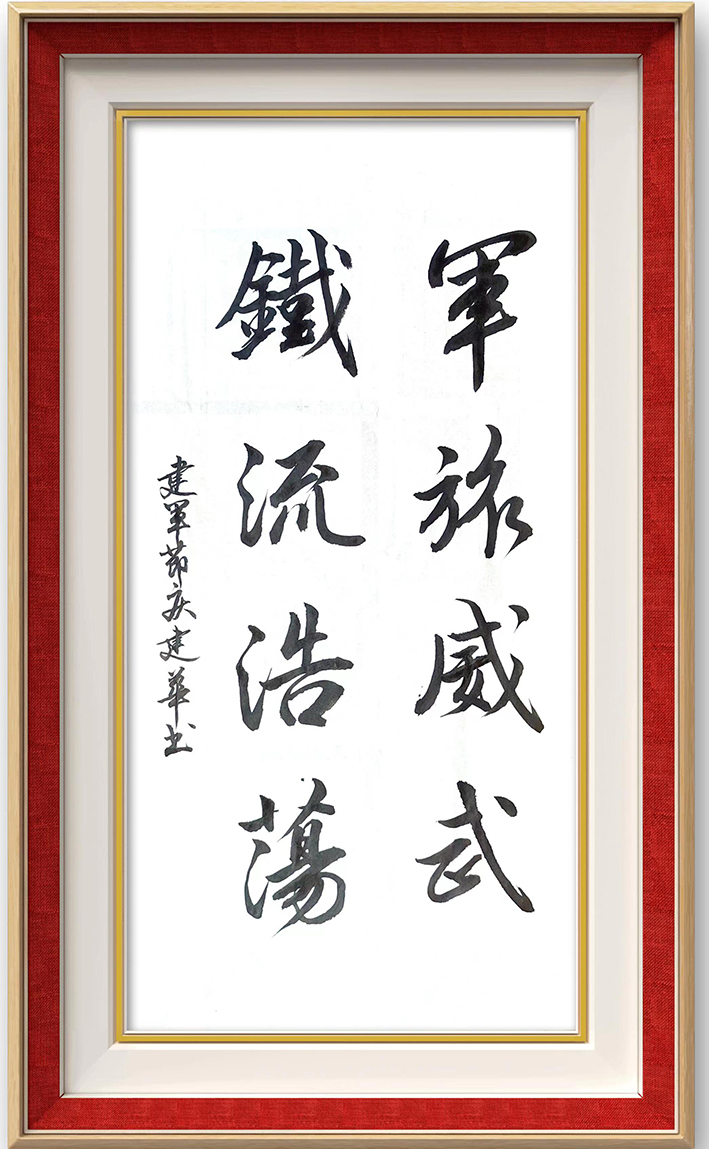 軍旅威武
鐵流浩蕩
建軍節庆建華书